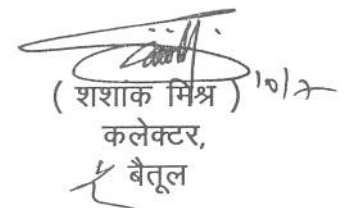 ( शशांक मिश्र ) 10/7
कलेक्टर,
बैतूल